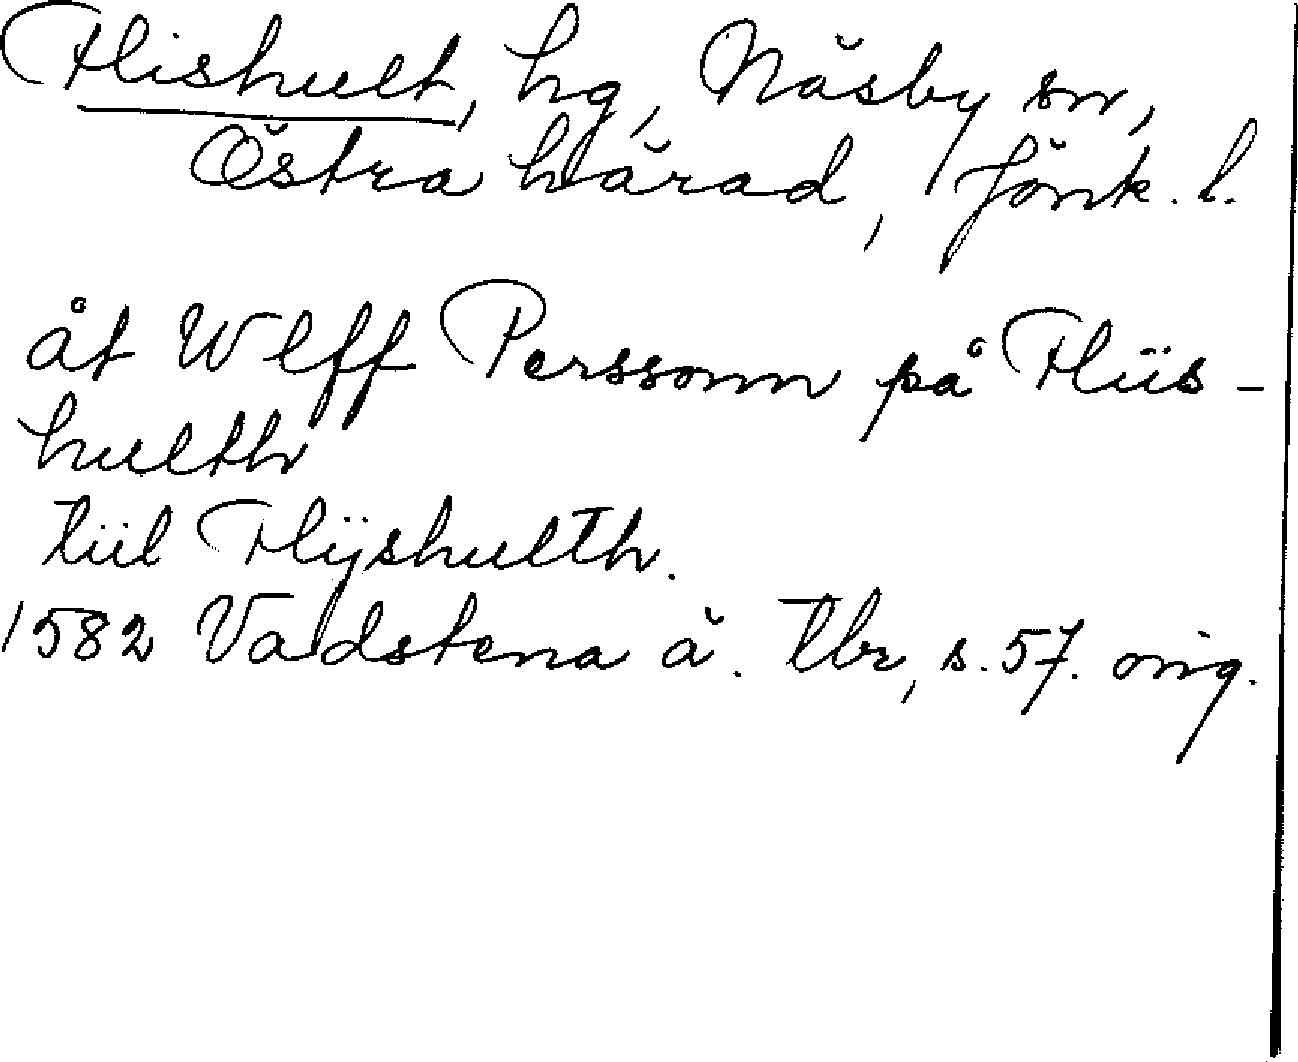 Flishult, hg, Näsby sn,
Östra härad, Jönk. l.
åt Wlff Perssonn på Fliis-
hullth
tiil Flijshullth.
1582 Vadstena ä. tbr, s. 57. orig.